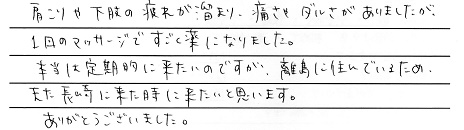 肩こりや下肢の疲れが溜まり、痛さやダルさがありましたが、
1回のマッサージですごく楽になりました。
本当は定期的に来たいのですが、離島に住んでいるため、
また長崎に来た時に来たいと思います。
ありがとうございました。